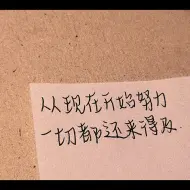 从现在开始努力
一切都还来得及.